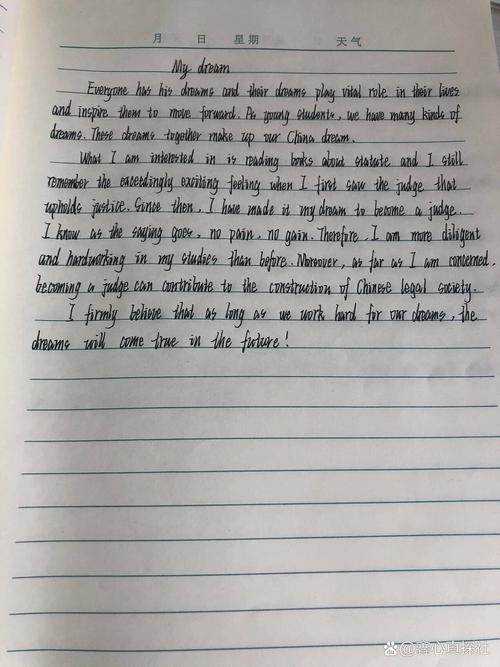 月 日 星期 天气
My dream
Everyone has his dreams and their dreams play vital role in their lives
and inspire them to move forward. As young students, we have many kinds of
dreams. These dreams together make up our China dream.
What I am interested in is reading books about statute and I still
remember the exceedingly exciting feeling when I first saw the judge that
upholds justice. Since then, I have made it my dream to become a judge.
I know as the saying goes, no pain, no gain. Therefore, I am more diligent
and hardworking in my studies than before. Moreover, as far as I am concerned,
becoming a judge can contribute to the construction of Chinese legal society.
I firmly believe that as long as we work hard for our dreams, the
dreams will come true in the future!